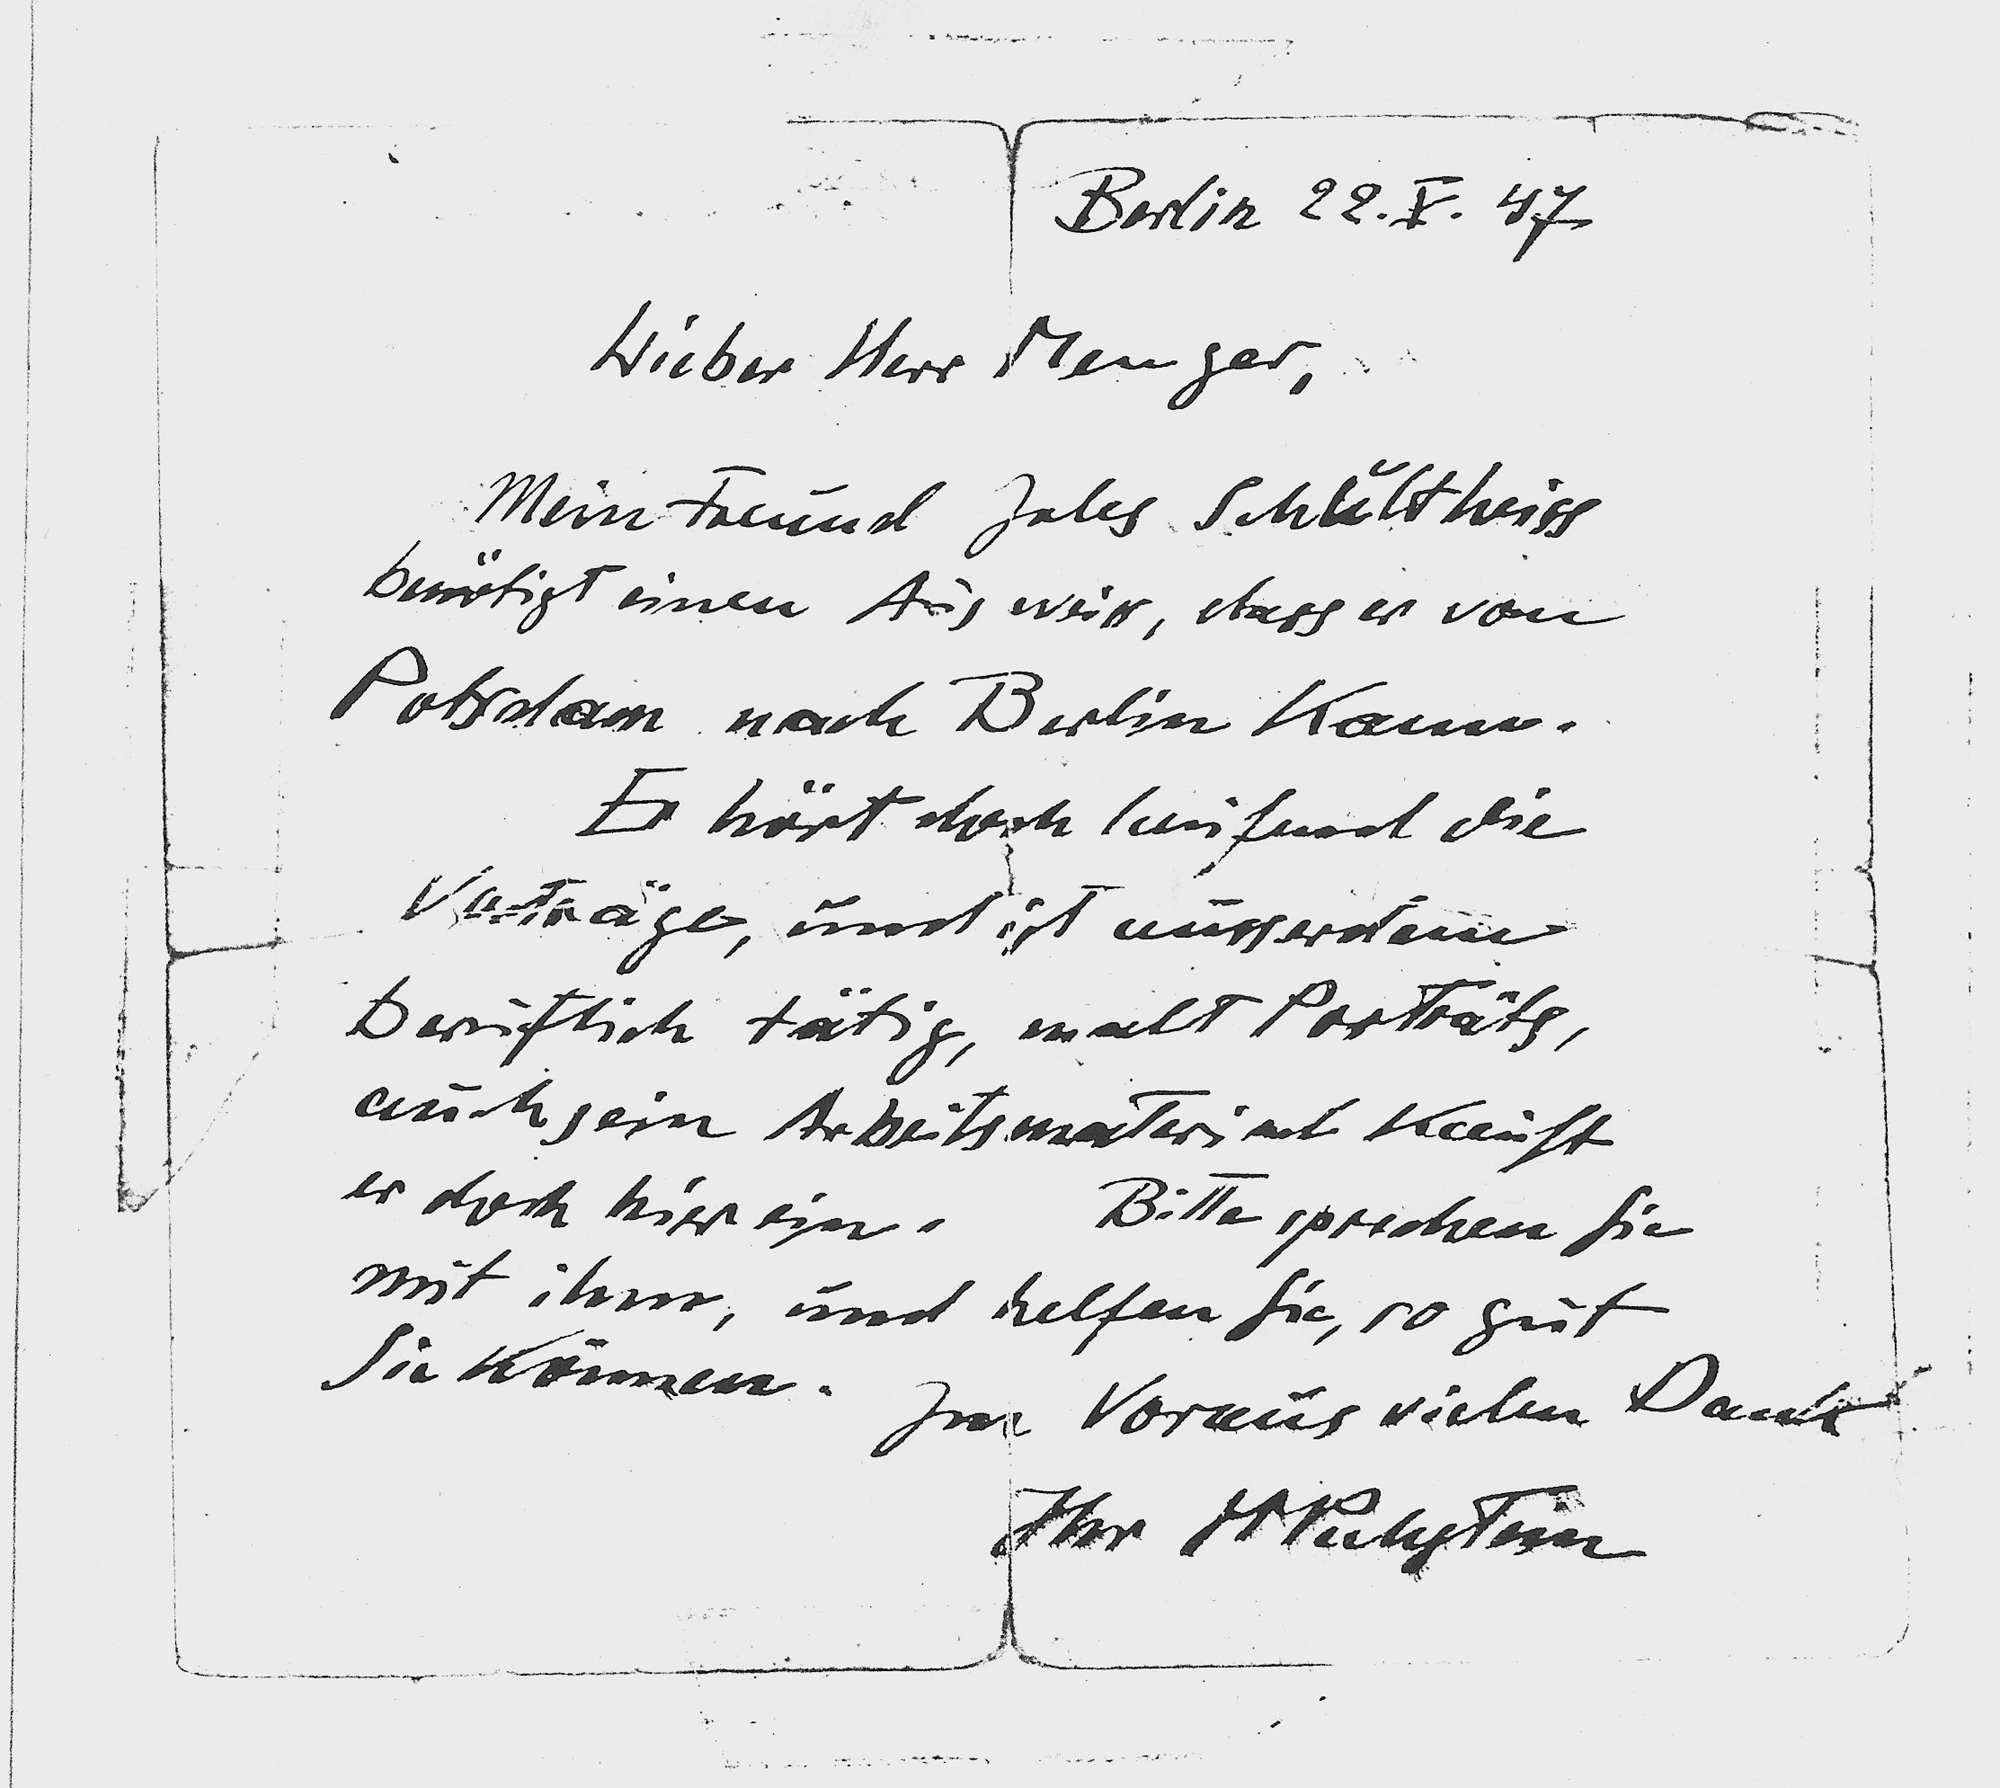 Berlin 22. V. 47
Lieber Herr Menger,
Mein Freund Jules Schultheiss
benötigt einen Ausweis, dass er von
Potsdam nach Berlin kann.
Er hört doch laufend die
Vorträge, und ist ausserdem
beruflich tätig, malt Porträts,
auch sein Arbeitsmaterial kauft
er doch hier ein. Bitte sprechen Sie
mit ihm, und helfen Sie, so gut
Sie können.
Im Voraus vielen Dank
Ihr HMPechstein